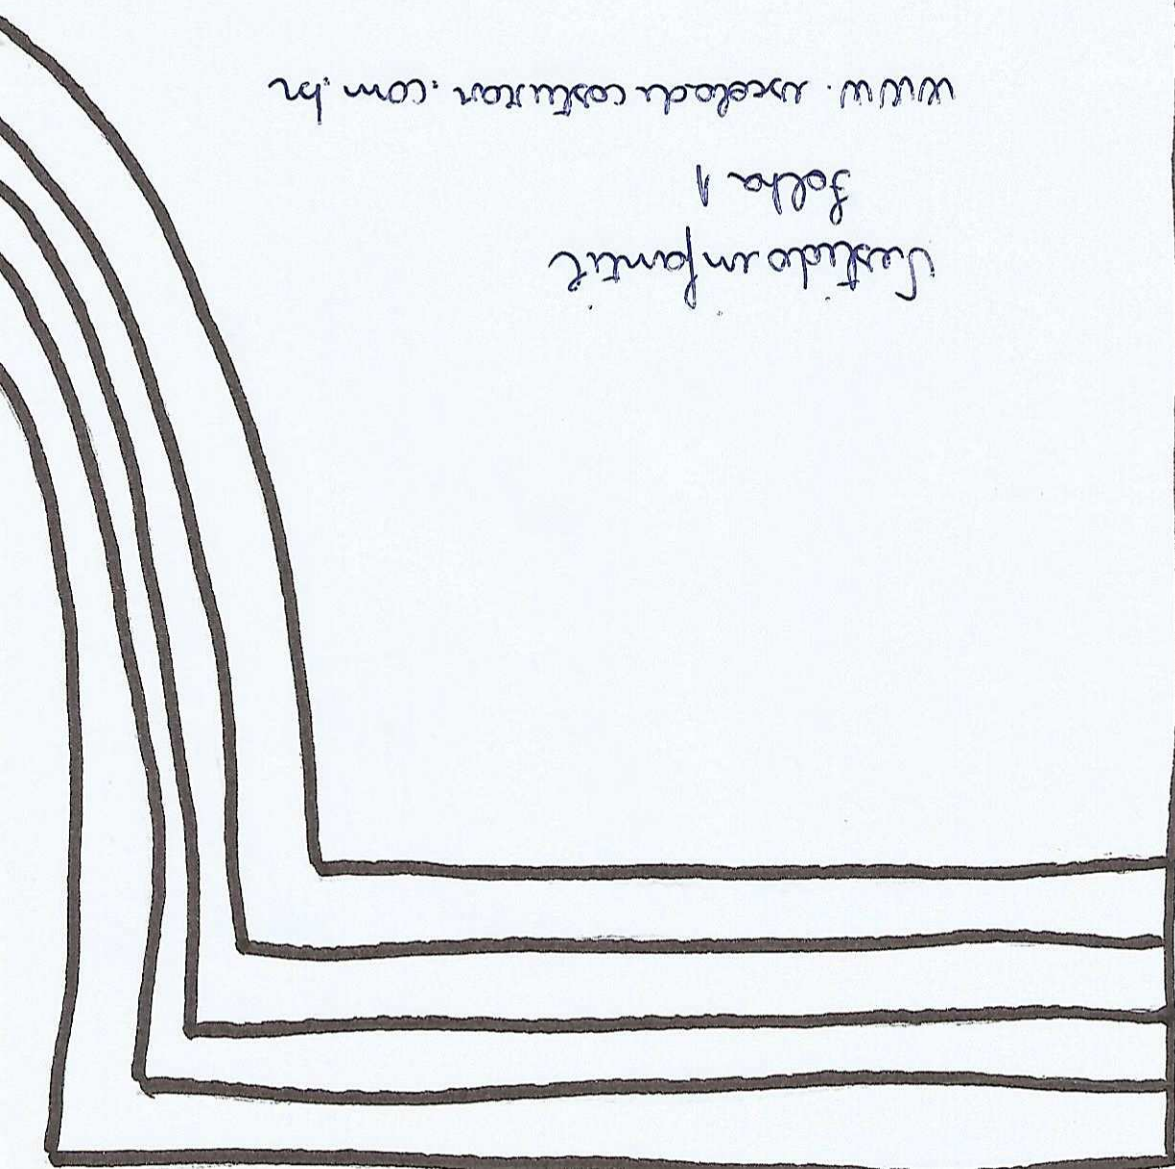 Vestido infantil
Folha 1
www.escoladecostura.com.br